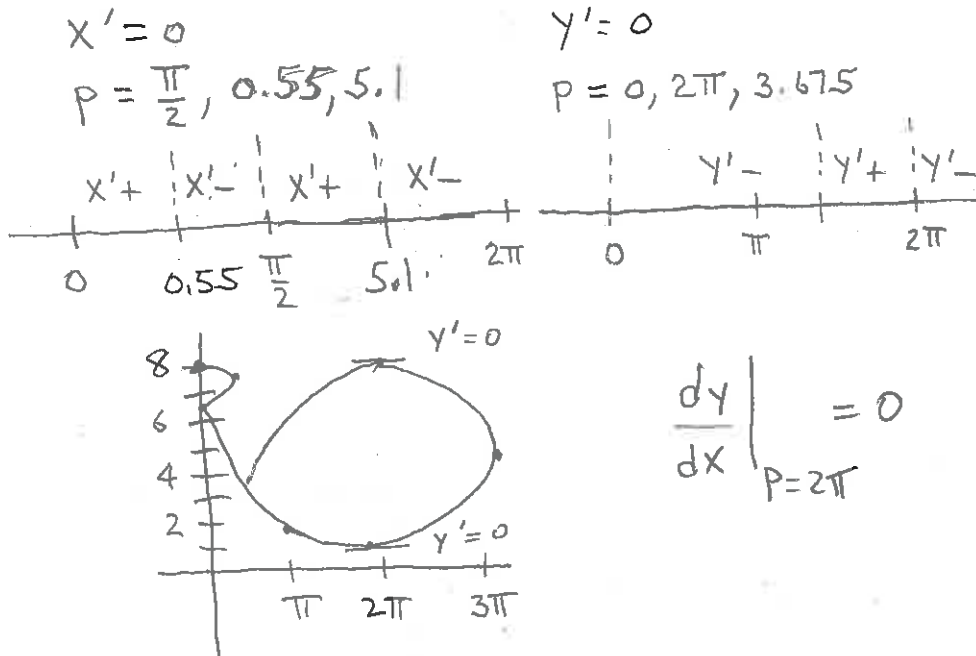 x' = 0
p = π/2, 0.55, 5.1
x'+ x'- x'+ x'-
0 0.55 π/2 5.1 2π
y' = 0
p = 0, 2π, 3.675
y'- y'+ y'-
0 π 2π
y' = 0
8
6
4
2
y' = 0
π 2π 3π
dy/dx | p=2π = 0